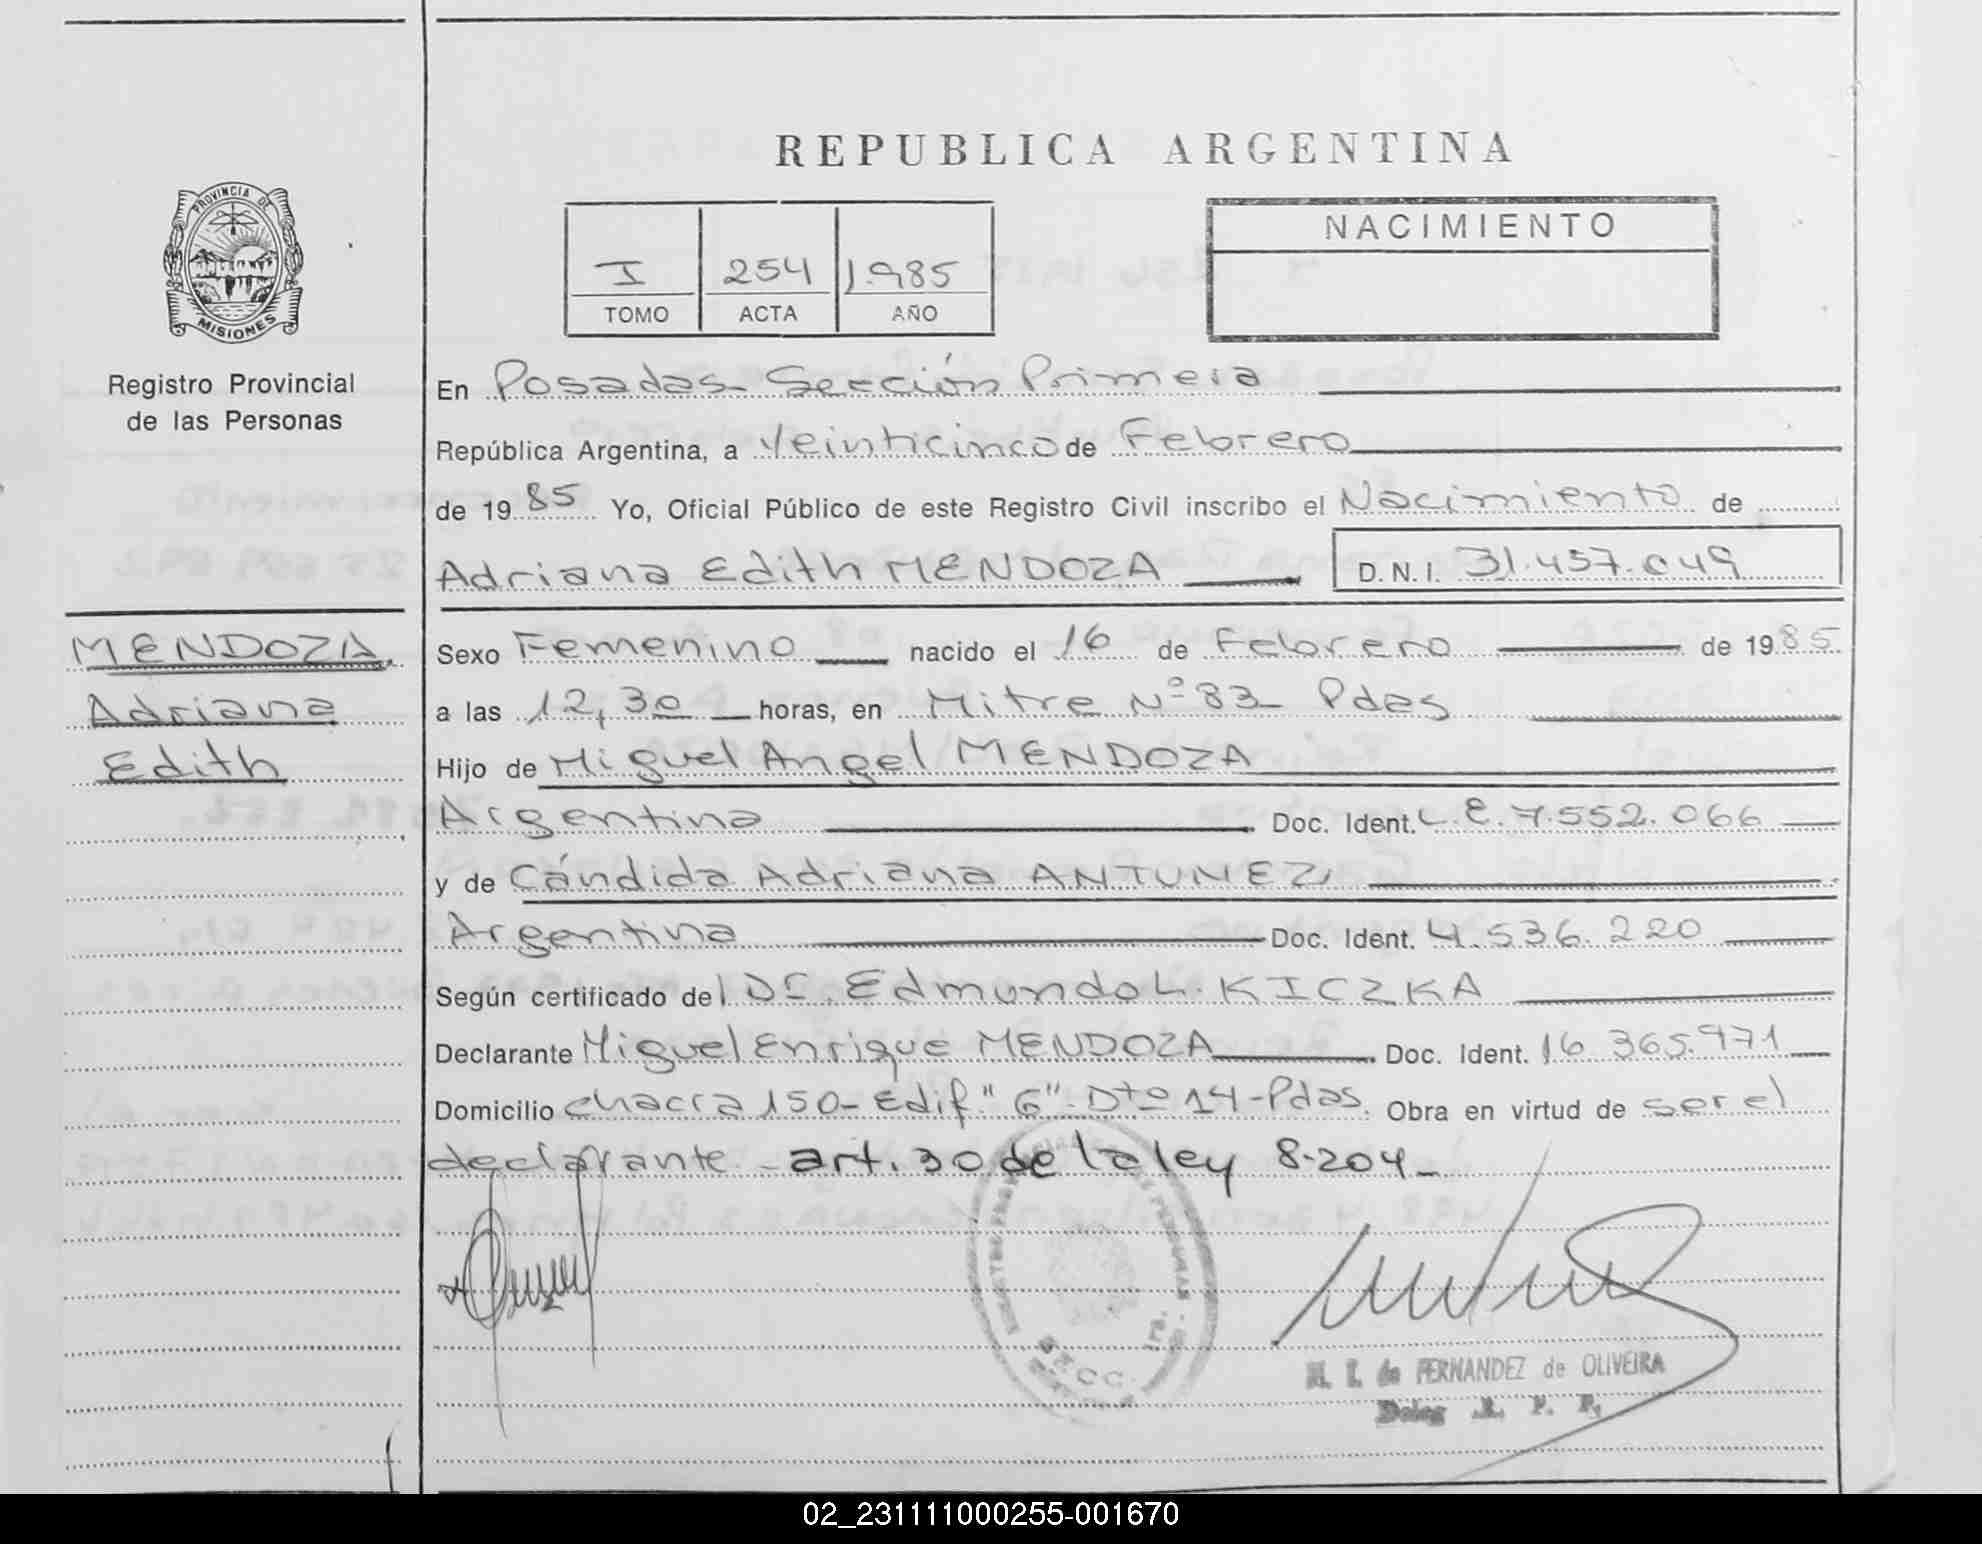 REPUBLICA ARGENTINA
PROVINCIA DE
MISIONES
Registro Provincial
de las Personas
I 254 1.985
TOMO ACTA AÑO
NACIMIENTO
En Posadas - Sección Primera
República Argentina, a Veinticinco de Febrero
de 1985 Yo, Oficial Público de este Registro Civil inscribo el Nacimiento de
Adriana Edith MENDOZA D.N.I. 31.457.049
MENDOZA
Adriana
Edith
Sexo Femenino nacido el 16 de Febrero de 1985
a las 12,30 horas, en Mitre Nº 83 - Pdas
Hijo de Miguel Angel MENDOZA
Argentina Doc. Ident. L.E. 7.552.066
y de Cándida Adriana ANTUNEZ
Argentina Doc. Ident. 4.536.220
Según certificado del Dr. Edmundo L. KICZKA
Declarante Miguel Enrique MENDOZA Doc. Ident. 16.365.971
Domicilio chacra 150 - Edif. "G" - Dto 14 - Pdas. Obra en virtud de ser el
declarante - art. 30 de la ley 8.204 -
SECC. 1ra.
de FERNANDEZ de OLIVEIRA
Deleg. R. P. P.
02_231111000255-001670